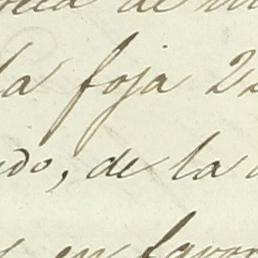 la foja 22
do, de la
en favor